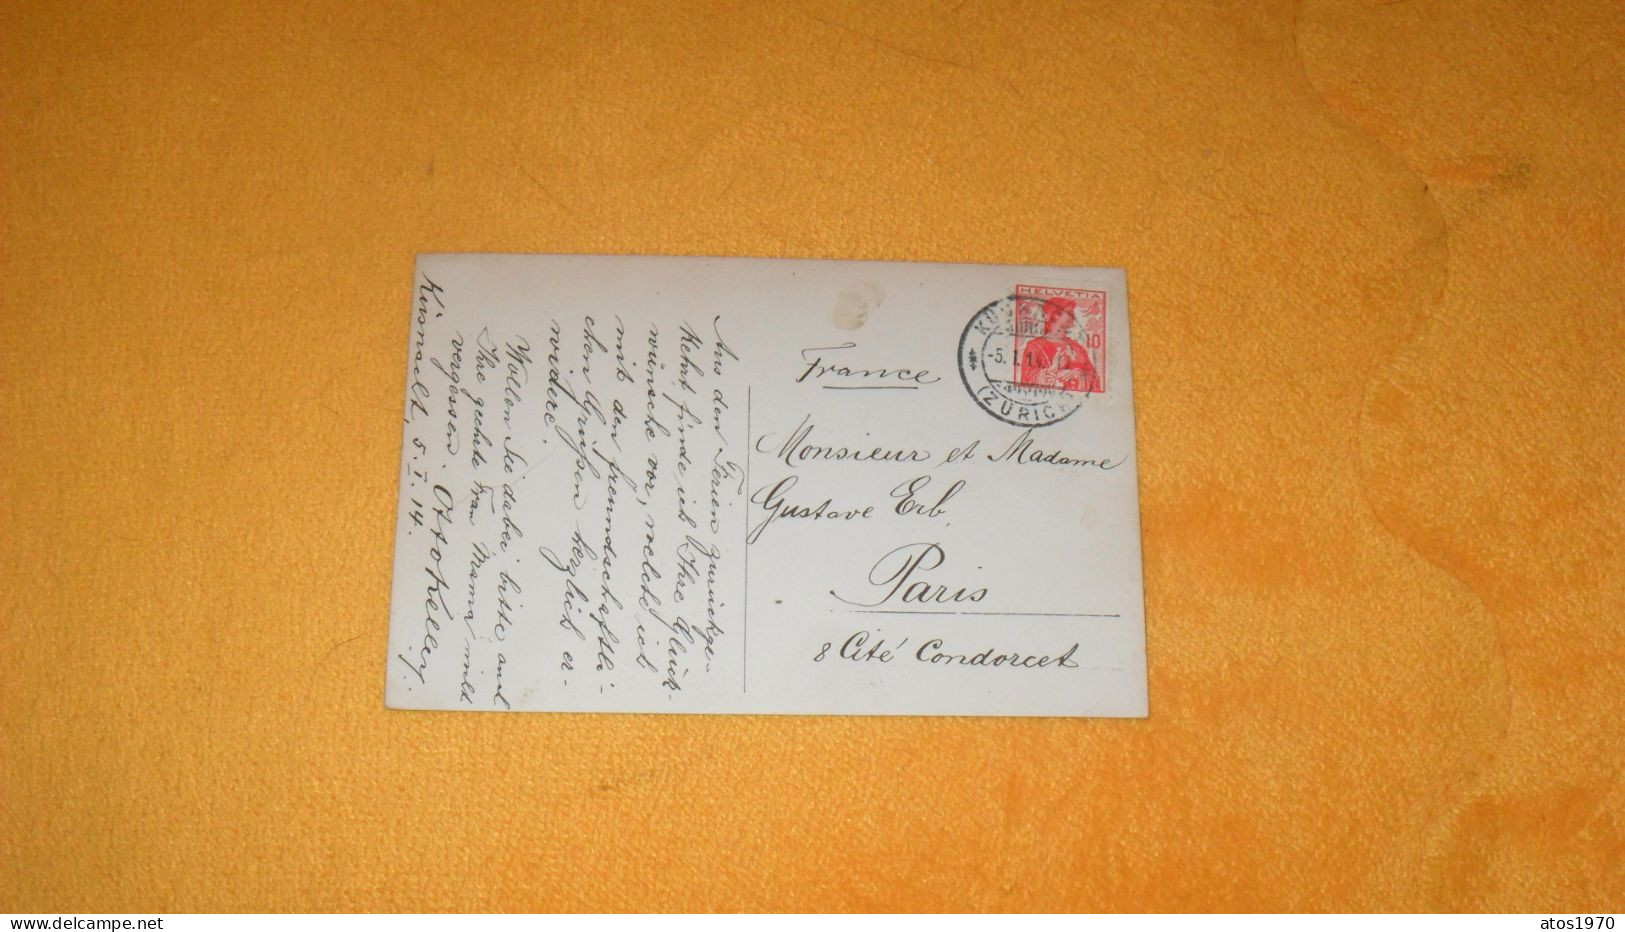 Aus den Ferien zurückge-
kehrt finde ich Ihre Glück-
wünsche vor, welche ich
mit den freundschaftli-
chen Grüßen herzlich er-
widere.
Wollen Sie dabei bitte, auch
Ihre geehrte Frau Mama nicht
vergessen.
Küsnacht, 5. I. 14.
HELVETIA
10
-5. I. 14.
(ZÜRICH)
France
Monsieur et Madame
Gustave Erb.
Paris
8 Cité Condorcet
Delcampe.net
atos1970